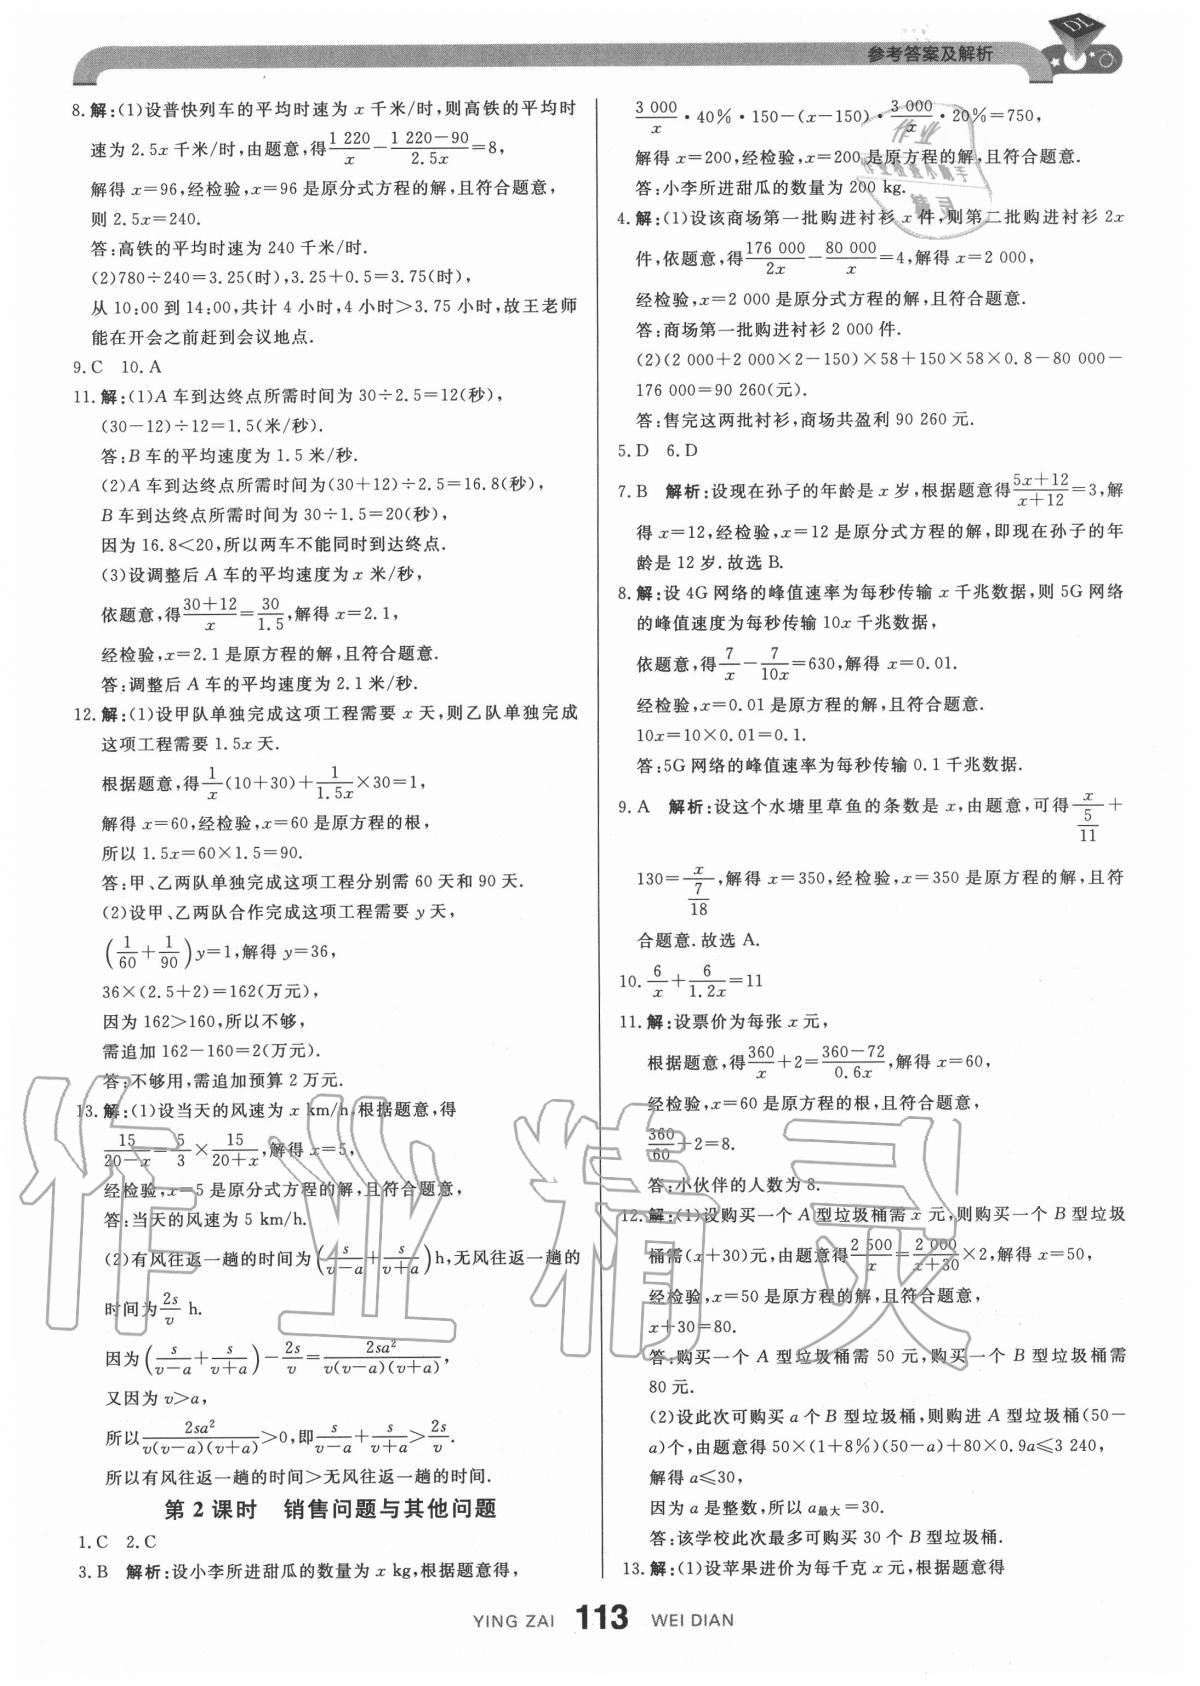 参考答案及解析
DL
8.解:(1)设普快列车的平均时速为 x 千米/时,则高铁的平均时
速为 2.5x 千米/时,由题意,得\frac{1 220}{x}-\frac{1 220-90}{2.5x}=8,
解得 x=96,经检验,x=96 是原分式方程的解,且符合题意,
则 2.5x=240.
答:高铁的平均时速为 240 千米/时.
(2)780÷240=3.25(时),3.25+0.5=3.75(时),
从 10:00 到 14:00,共计 4 小时,4 小时>3.75 小时,故王老师
能在开会之前赶到会议地点.
9.C 10.A
11.解:(1)A 车到达终点所需时间为 30÷2.5=12(秒),
(30-12)÷12=1.5(米/秒).
答:B 车的平均速度为 1.5 米/秒.
(2)A 车到达终点所需时间为(30+12)÷2.5=16.8(秒),
B 车到达终点所需时间为 30÷1.5=20(秒),
因为 16.8<20,所以两车不能同时到达终点.
(3)设调整后 A 车的平均速度为 x 米/秒,
依题意,得\frac{30+12}{x}=\frac{30}{1.5},解得 x=2.1,
经检验,x=2.1 是原方程的解,且符合题意.
答:调整后 A 车的平均速度为 2.1 米/秒.
12.解:(1)设甲队单独完成这项工程需要 x 天,则乙队单独完成
这项工程需要 1.5x 天.
根据题意,得\frac{1}{x}(10+30)+\frac{1}{1.5x}×30=1,
解得 x=60,经检验,x=60 是原方程的根,
所以 1.5x=60×1.5=90.
答:甲、乙两队单独完成这项工程分别需 60 天和 90 天.
(2)设甲、乙两队合作完成这项工程需要 y 天,
(\frac{1}{60}+\frac{1}{90})y=1,解得 y=36,
36×(2.5+2)=162(万元),
因为 162>160,所以不够,
需追加 162-160=2(万元).
答:不够用,需追加预算 2 万元.
13.解:(1)设当天的风速为 x km/h,根据题意,得
\frac{15}{20-x}=\frac{5}{3}×\frac{15}{20+x},解得 x=5,
经检验,x=5 是原分式方程的解,且符合题意,
答:当天的风速为 5 km/h.
(2)有风往返一趟的时间为(\frac{s}{v-a}+\frac{s}{v+a})h,无风往返一趟的
时间为\frac{2s}{v} h.
因为(\frac{s}{v-a}+\frac{s}{v+a})-\frac{2s}{v}=\frac{2sa²}{v(v-a)(v+a)},
又因为 v>a,
所以\frac{2sa²}{v(v-a)(v+a)}>0,即\frac{s}{v-a}+\frac{s}{v+a}>\frac{2s}{v}.
所以有风往返一趟的时间>无风往返一趟的时间.
第 2 课时 销售问题与其他问题
1.C 2.C
3.B 解析:设小李所进甜瓜的数量为 x kg,根据题意得,
\frac{3 000}{x}·40%·150-(x-150)·\frac{3 000}{x}·20%=750,
解得 x=200,经检验,x=200 是原方程的解,且符合题意.
答:小李所进甜瓜的数量为 200 kg.
4.解:(1)设该商场第一批购进衬衫 x 件,则第二批购进衬衫 2x
件,依题意,得\frac{176 000}{2x}-\frac{80 000}{x}=4,解得 x=2 000,
经检验,x=2 000 是原分式方程的解,且符合题意.
答:商场第一批购进衬衫 2 000 件.
(2)(2 000+2 000×2-150)×58+150×58×0.8-80 000-
176 000=90 260(元).
答:售完这两批衬衫,商场共盈利 90 260 元.
5.D 6.D
7.B 解析:设现在孙子的年龄是 x 岁,根据题意得\frac{5x+12}{x+12}=3,解
得 x=12,经检验,x=12 是原分式方程的解,即现在孙子的年
龄是 12 岁.故选 B.
8.解:设 4G 网络的峰值速率为每秒传输 x 千兆数据,则 5G 网络
的峰值速度为每秒传输 10x 千兆数据,
依题意,得\frac{7}{x}-\frac{7}{10x}=630,解得 x=0.01.
经检验,x=0.01 是原方程的解,且符合题意.
10x=10×0.01=0.1.
答:5G 网络的峰值速率为每秒传输 0.1 千兆数据.
9.A 解析:设这个水塘里草鱼的条数是 x,由题意,可得\frac{x}{\frac{5}{11}}+
130=\frac{x}{\frac{7}{18}},解得 x=350,经检验,x=350 是原方程的解,且符
合题意.故选 A.
10.\frac{6}{x}+\frac{6}{1.2x}=11
11.解:设票价为每张 x 元,
根据题意,得\frac{360}{x}+2=\frac{360-72}{0.6x},解得 x=60,
经检验,x=60 是原方程的根,且符合题意,
\frac{360}{60}+2=8.
答:小伙伴的人数为 8.
12.解:(1)设购买一个 A 型垃圾桶需 x 元,则购买一个 B 型垃圾
桶需(x+30)元,由题意得\frac{2 500}{x}=\frac{2 000}{x+30}×2,解得 x=50,
经检验,x=50 是原方程的解,且符合题意,
x+30=80.
答:购买一个 A 型垃圾桶需 50 元,购买一个 B 型垃圾桶需
80 元.
(2)设此次可购买 a 个 B 型垃圾桶,则购进 A 型垃圾桶(50-
a)个,由题意得 50×(1+8%)(50-a)+80×0.9a≤3 240,
解得 a≤30,
因为 a 是整数,所以 a最大=30.
答:该学校此次最多可购买 30 个 B 型垃圾桶.
13.解:(1)设苹果进价为每千克 x 元,根据题意得
YING ZAI 113 WEI DIAN
作业精灵
作业
作业检查小助手
精灵